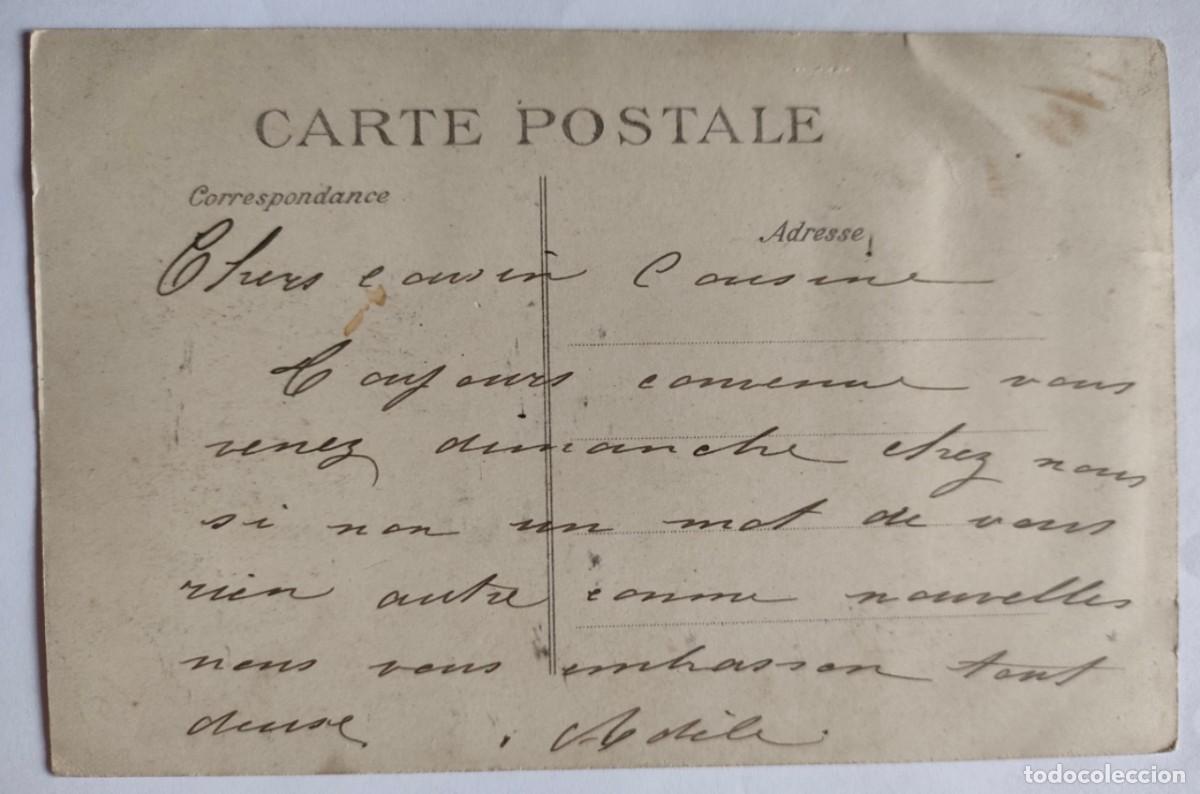 CARTE POSTALE
Correspondance
Adresse
Chers cousin Cousine
Toujours convenue vous
venez dimanche chez nous
si non un mot de vous
rien autre comme nouvelles
nous vous embrasson tout
deuse. Adèle
todocoleccion